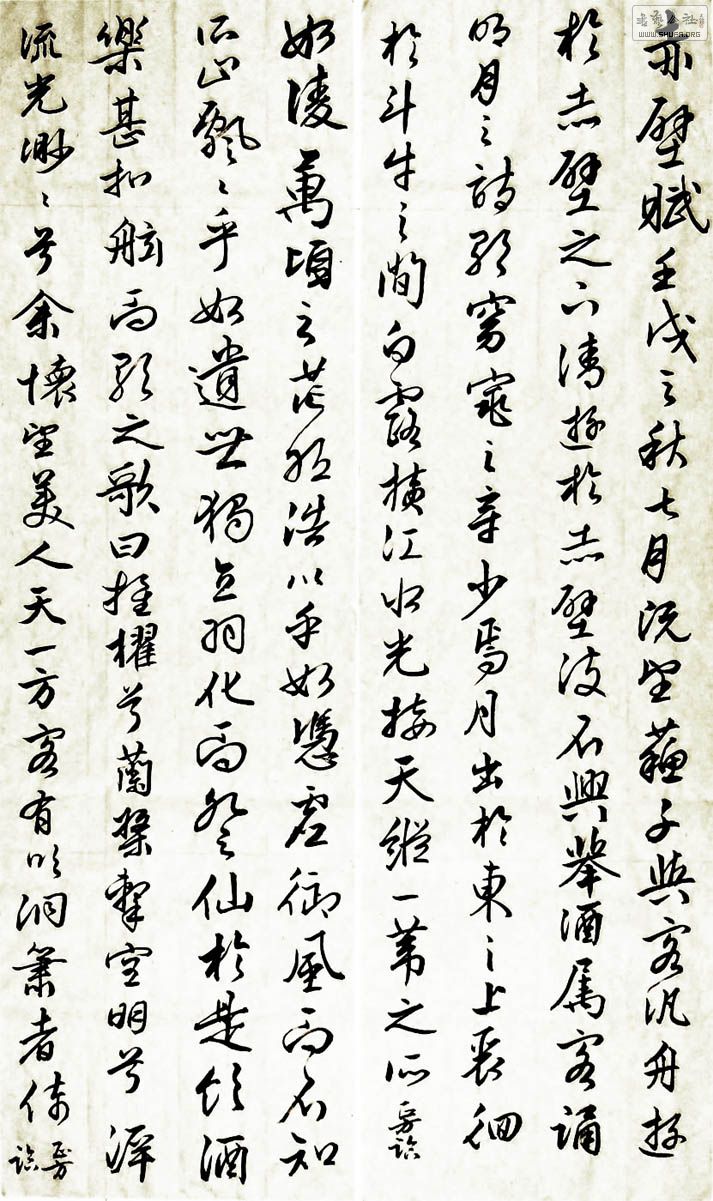 赤壁賦壬戌之秋七月既望蘇子與客汎舟遊
於赤壁之下清遊於赤壁波不興舉酒属客誦
明月之詩歌窈窕之章少焉月出於東之上裵徊
於斗牛之間白露橫江水光接天縱一葦之所
如淩萬頃之茫然浩〻乎如憑虛御風而不知
所止飄〻乎如遺世獨立羽化而登仙於是飲酒
樂甚扣舷而歌之歌曰桂櫂兮蘭槳擊空明兮泝
流光渺〻兮余懷望美人天一方客有吹洞簫者倚
書藝公社
WWW.SHUFA.ORG